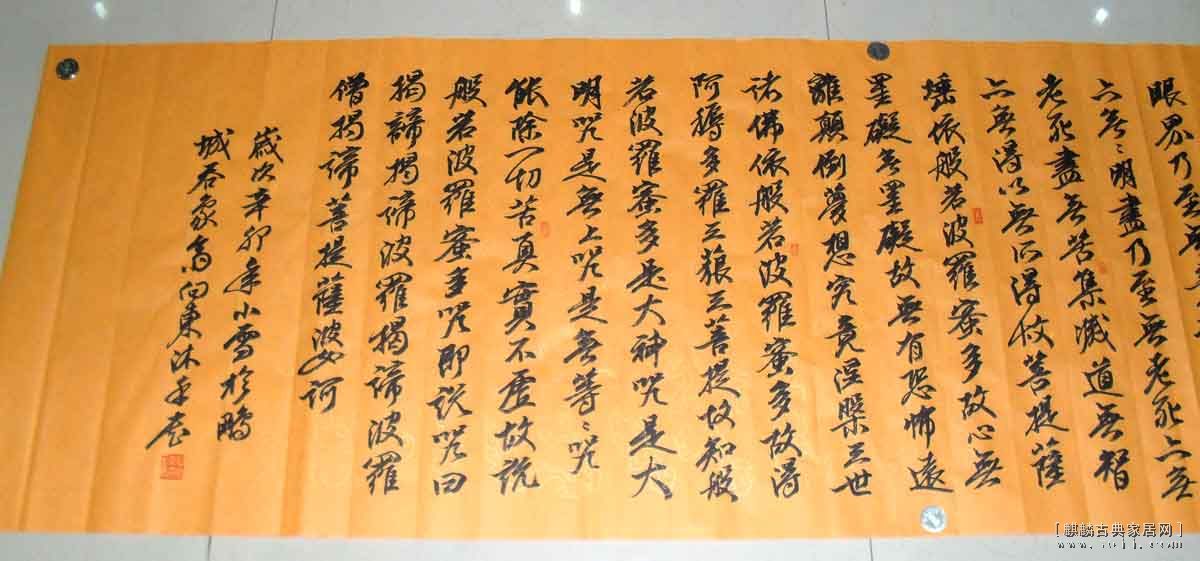 眼界乃至無
亦無〻明盡乃至無老死亦無
老死盡無苦集滅道無智
亦無得以無所得故菩提薩
埵依般若波羅蜜多故心無
罣礙無罣礙故無有恐怖遠
離顛倒夢想究竟涅槃三世
諸佛依般若波羅蜜多故得
阿耨多羅三藐三菩提故知般
若波羅蜜多是大神咒是大
明咒是無上咒是無等〻咒
能除一切苦真實不虛故說
般若波羅蜜多咒即說咒曰
揭諦揭諦波羅揭諦波羅
僧揭諦菩提薩婆訶
歲次辛卯年小雪於鵬
城吞象齋向東沐手書
[麒麟古典家居网]